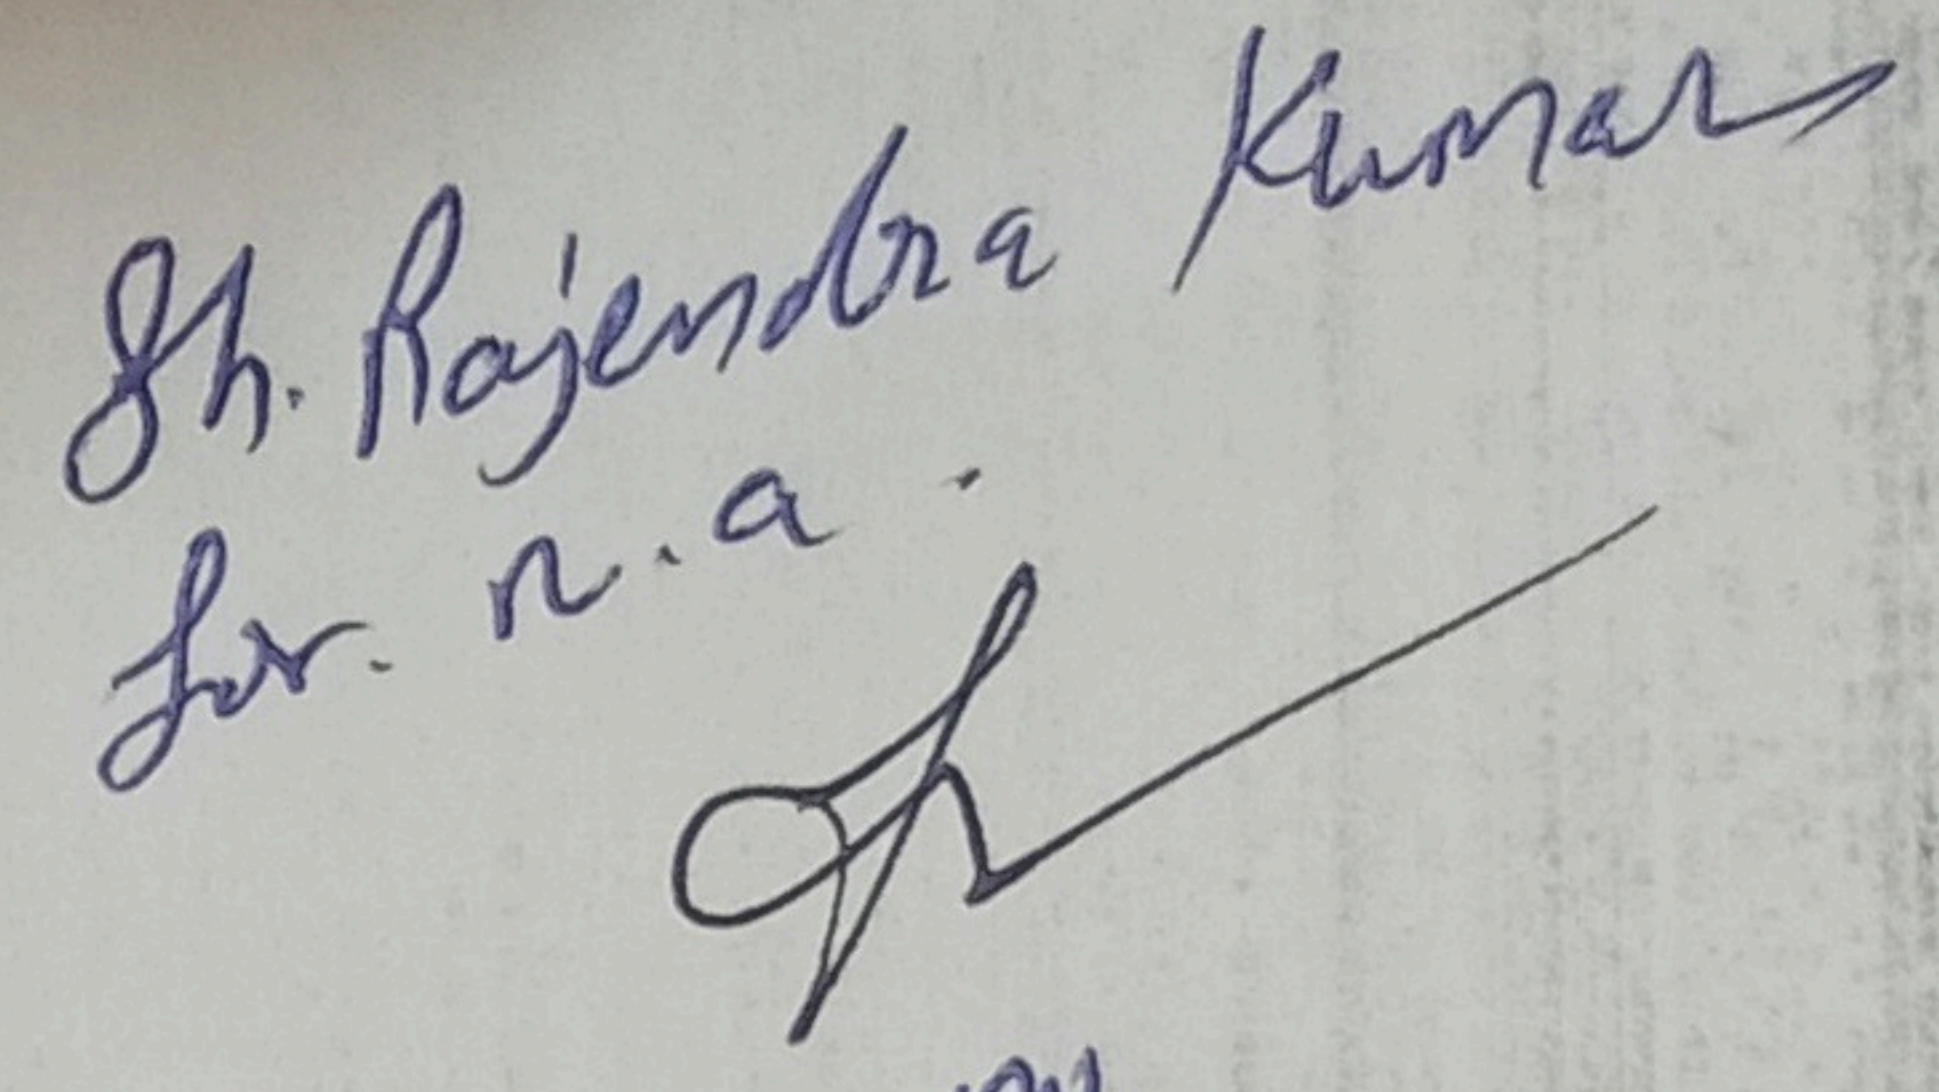 Sh. Rajendra Kumar
for. n.a.